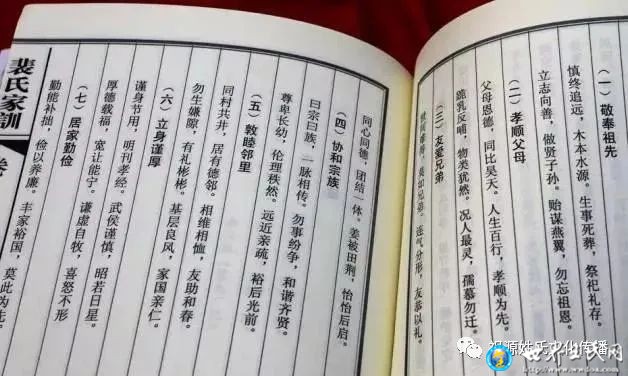 (一) 敬奉祖先
慎终追远，木本水源。生事死葬，祭祀礼存。
立志向善，做贤子孙。贻谋燕翼，勿忘祖恩。
(二) 孝顺父母
父母恩德，同比昊天。人生百行，孝顺为先。
跪乳反哺，物类犹然。况人最灵，孺慕勿迁。
(三) 友爱兄弟
世间难得，莫如兄弟。连气分形，友恭以礼。
同心同德，团结一体。姜被田荆，怡怡后启。
(四) 协和宗族
曰宗曰族，一脉相传。勿事纷争，和谐齐贤。
尊卑长幼，伦理秩然。远近亲疏，裕后光前。
(五) 敦睦邻里
同村共井，居有德邻。相维相恤，友助和春。
勿生嫌隙，有礼彬彬。基层良风，家国亲仁。
(六) 立身谨厚
谨身节用，明刊孝经。武侯谨慎，昭若日星。
厚德载福，宽让能宁。谦虚自牧，喜怒不形
(七) 居家勤俭
勤能补拙，俭以养廉。丰家裕国，莫此为先。
裴氏家訓
祖源姓氏文化传播
世界宗氏网
www.wdoa.com